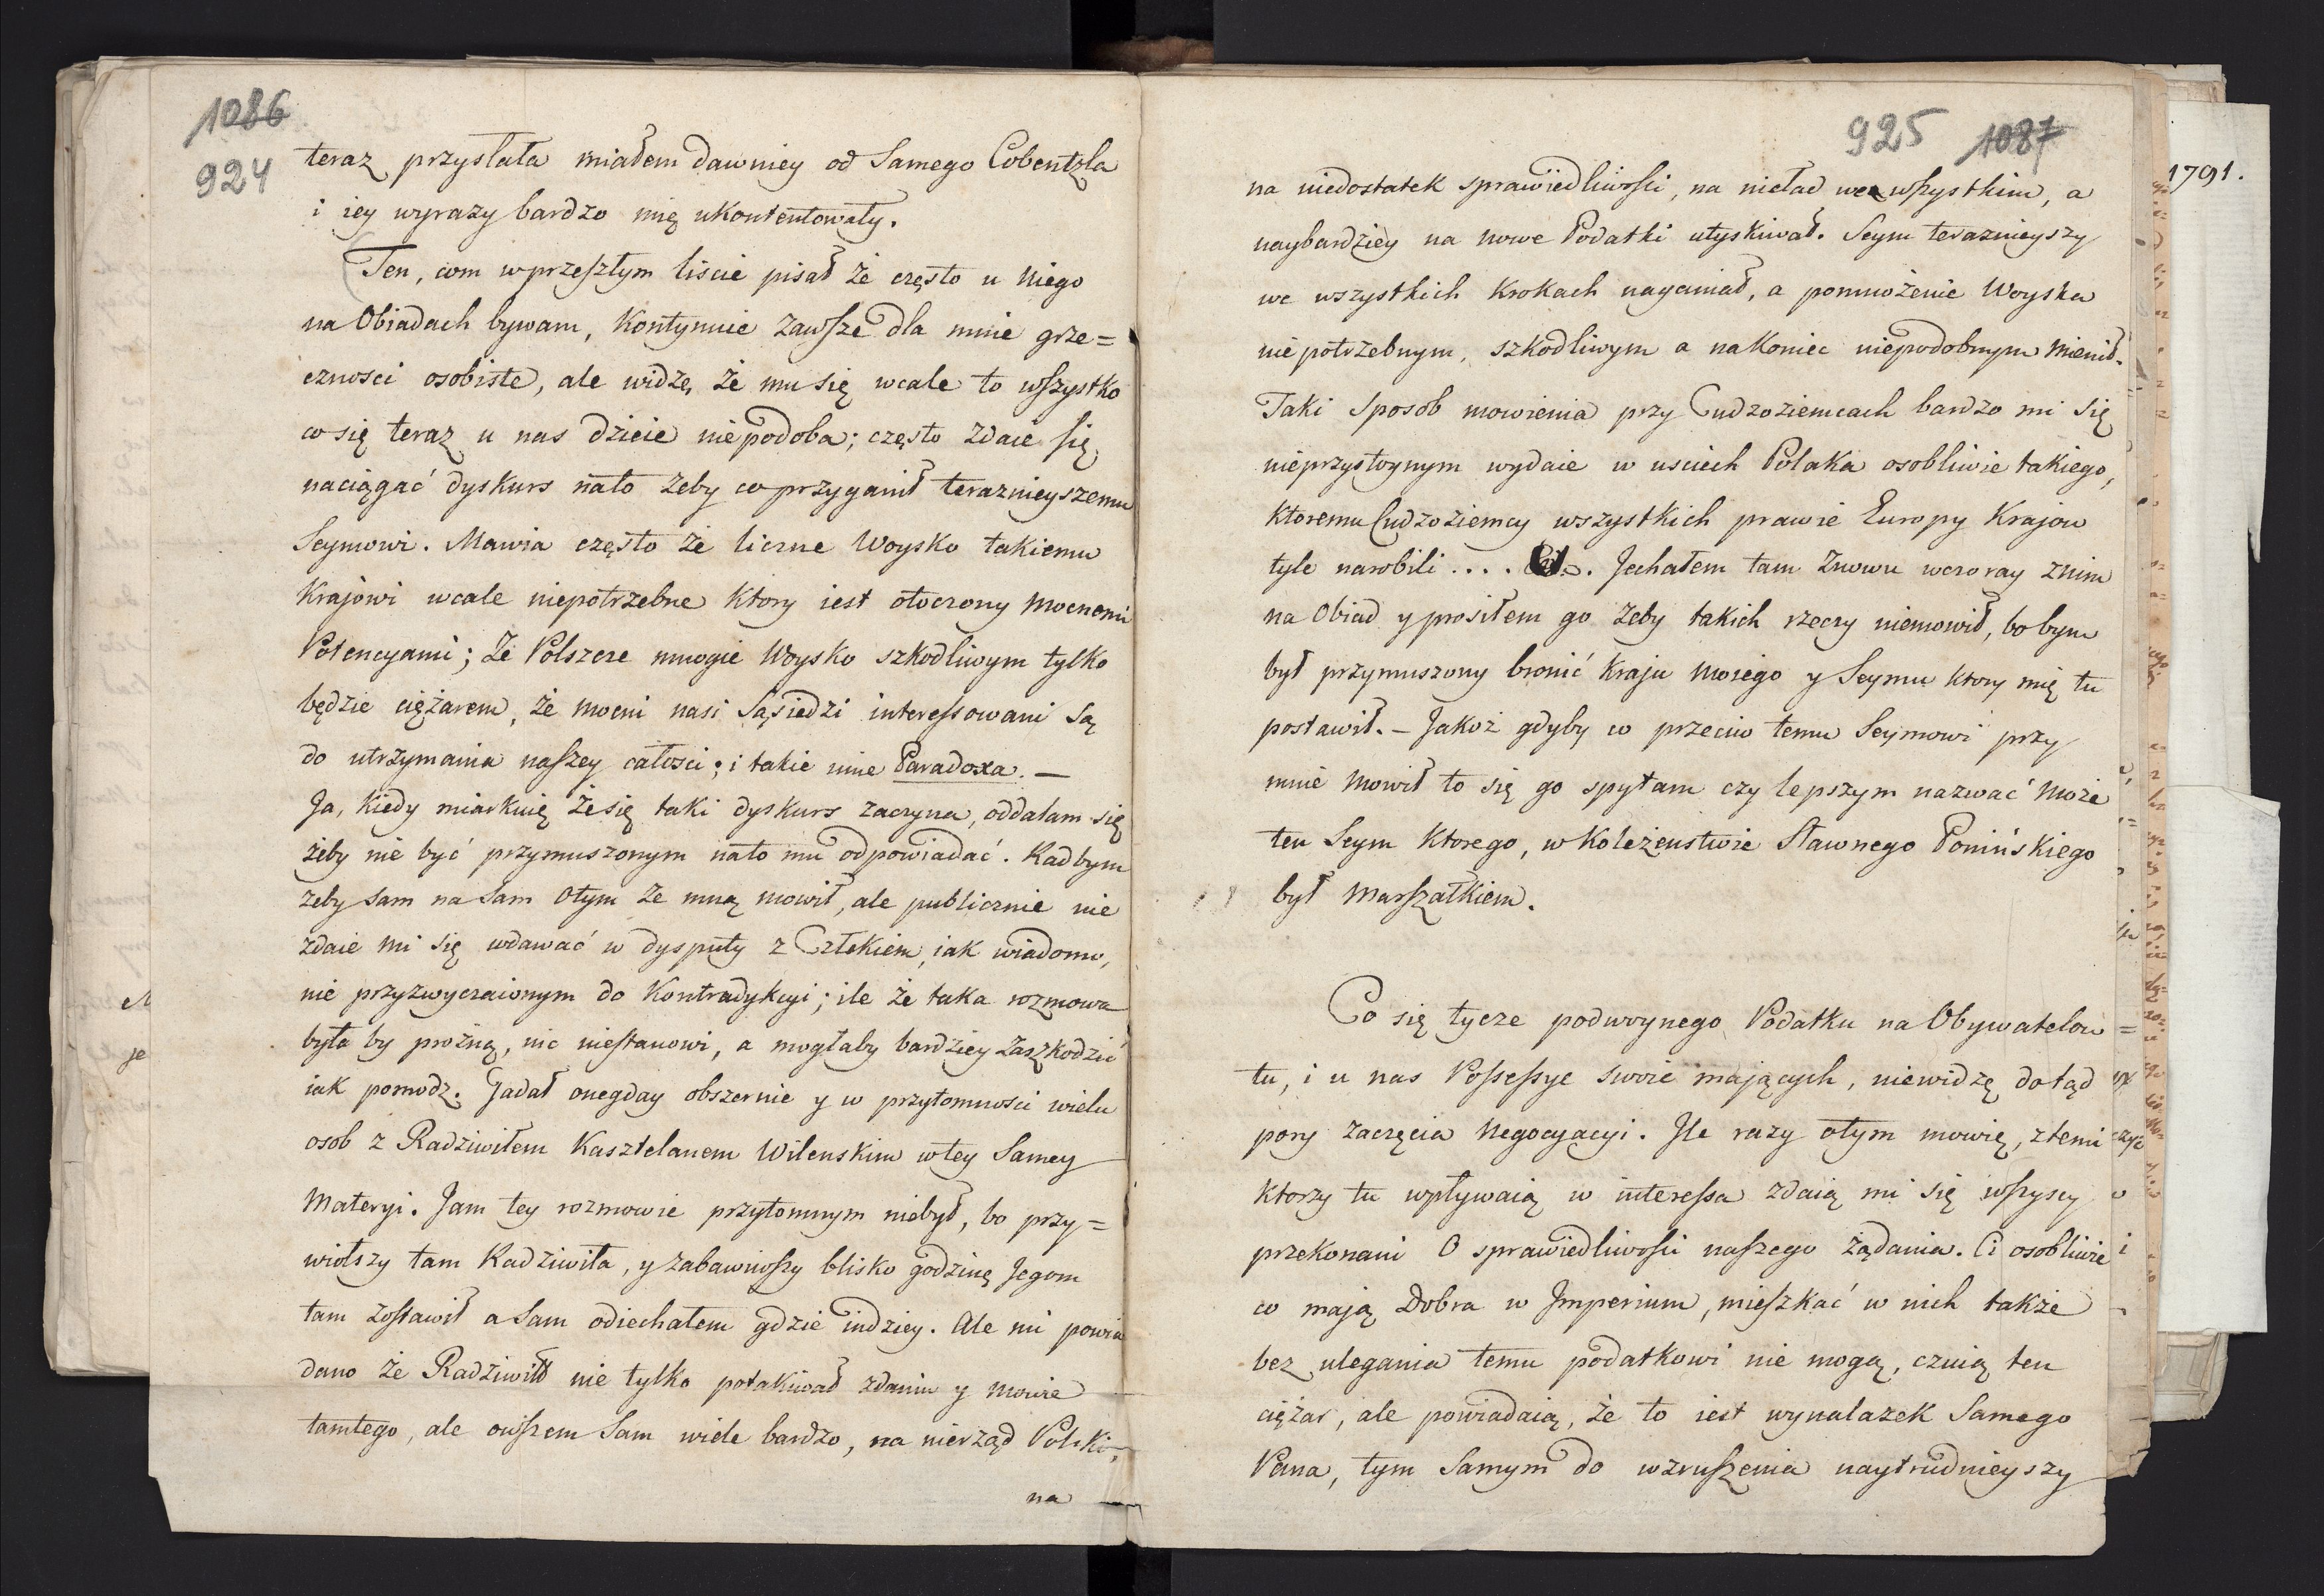 1086
924
teraz przysłała miałem dawniey od Samego Cobentzla
i iey wyrazy bardzo mię ukontentowały.
Ten, com w przeszłym liscie pisał że często u niego
na Obiadach bywam, kontynuie zawsze dla mnie grze=
cznosci osobiste, ale widzę, że mu się wcale to wszystko
co się teraz u nas dzieie niepodoba; często zdaie się
naciągać dyskurs nato żeby co przyganił terazniejszemu
Seymowi. Mawia często że liczne Woysko takiemu
Krajowi wcale niepotrzebne ktory iest otoczony mocnemi
Potencyami; że Polszcze mnogie Woysko szkodliwym tylko
będzie ciężarem, że mocni nasi Sąsiedzi interessowani są
do utrzymania naszey całosci; i takie inne Paradoxa. —
Ja, kiedy miarkuię że się taki dyskurs zaczyna, oddalam się
żeby nie być przymuszonym nato mu odpowiadać. Radbym
żeby sam na sam otym ze mną mowił, ale publicznie nie
zdaie mi się wdawać w dysputy z Człekiem, iak wiadomo,
nie przyzwyczaionym do kontradykcyi; ile że taka rozmowa
była by prożną, nic niestanowi, a mogłaby bardziey zaszkodzić
iak pomodz. Gadał onegday obszernie y w przytomnosci wielu
osob z Radziwiłem Kasztelanem Wilenskim w tey samey
Materyi. Jam tey rozmowie przytomnym niebył, bo przy=
wiozszy tam Radziwiła, y zabawiwszy blisko godzinę Jegom
tam zostawił a sam odiechałem gdzie indziey. Ale mi powia
dano że Radziwiłł nie tylko potakiwał zdaniu y mowie
tamtego, ale owszem sam wiele bardzo, na nierząd Polski,
na
925 1087
na niedostatek sprawiedliwosci, na nieład we wszystkim, a
naybardziey na nowe Podatki utyskiwał. Seym teraznieyszy
we wszystkich krokach naganiał, a pomnożenie Woyska
niepotrzebnym, szkodliwym a nakoniec niepodobnym mienił.
Taki sposob mowienia przy Cudzoziemcach bardzo mi się
nieprzystoynym wydaie w usciech Polaka osobliwie takiego,
ktoremu Cudzoziemcy wszystkich prawie Europy Krajow
tyle narobili .... Jechałem tam znowu wczoray z nim
na Obiad y prosiłem go żeby takich rzeczy niemowił, bo bym
był przymuszony bronić Kraju mojego y Seymu ktory mię tu
postawił. — Jakoż gdyby co przeciw temu Seymowi przy
mnie mowił to się go spytam czy lepszym nazwać może
ten Seym ktorego, w koleżenstwie Sławnego Ponińskiego
był Marszałkiem.
Co się tycze podwoynego Podatku na Obywatelow
tu, i u nas Possessye swoie mających, niewidzę dotąd
pory zaczęcia Negocyacyi. Ile razy otym mowię, z temi
ktorzy tu wpływaią w interessa zdaią mi się wszyscy
przekonani o sprawiedliwosci naszego żądania. Ci osobliwie
co mają Dobra w Imperium, mieszkać w nich także
bez ulegania temu podatkowi nie mogą, czuią ten
ciężar, ale powiadaią, że to iest wynalazek Samego
Pana, tym samym do wzruszenia naytrudnieyszy
1791.